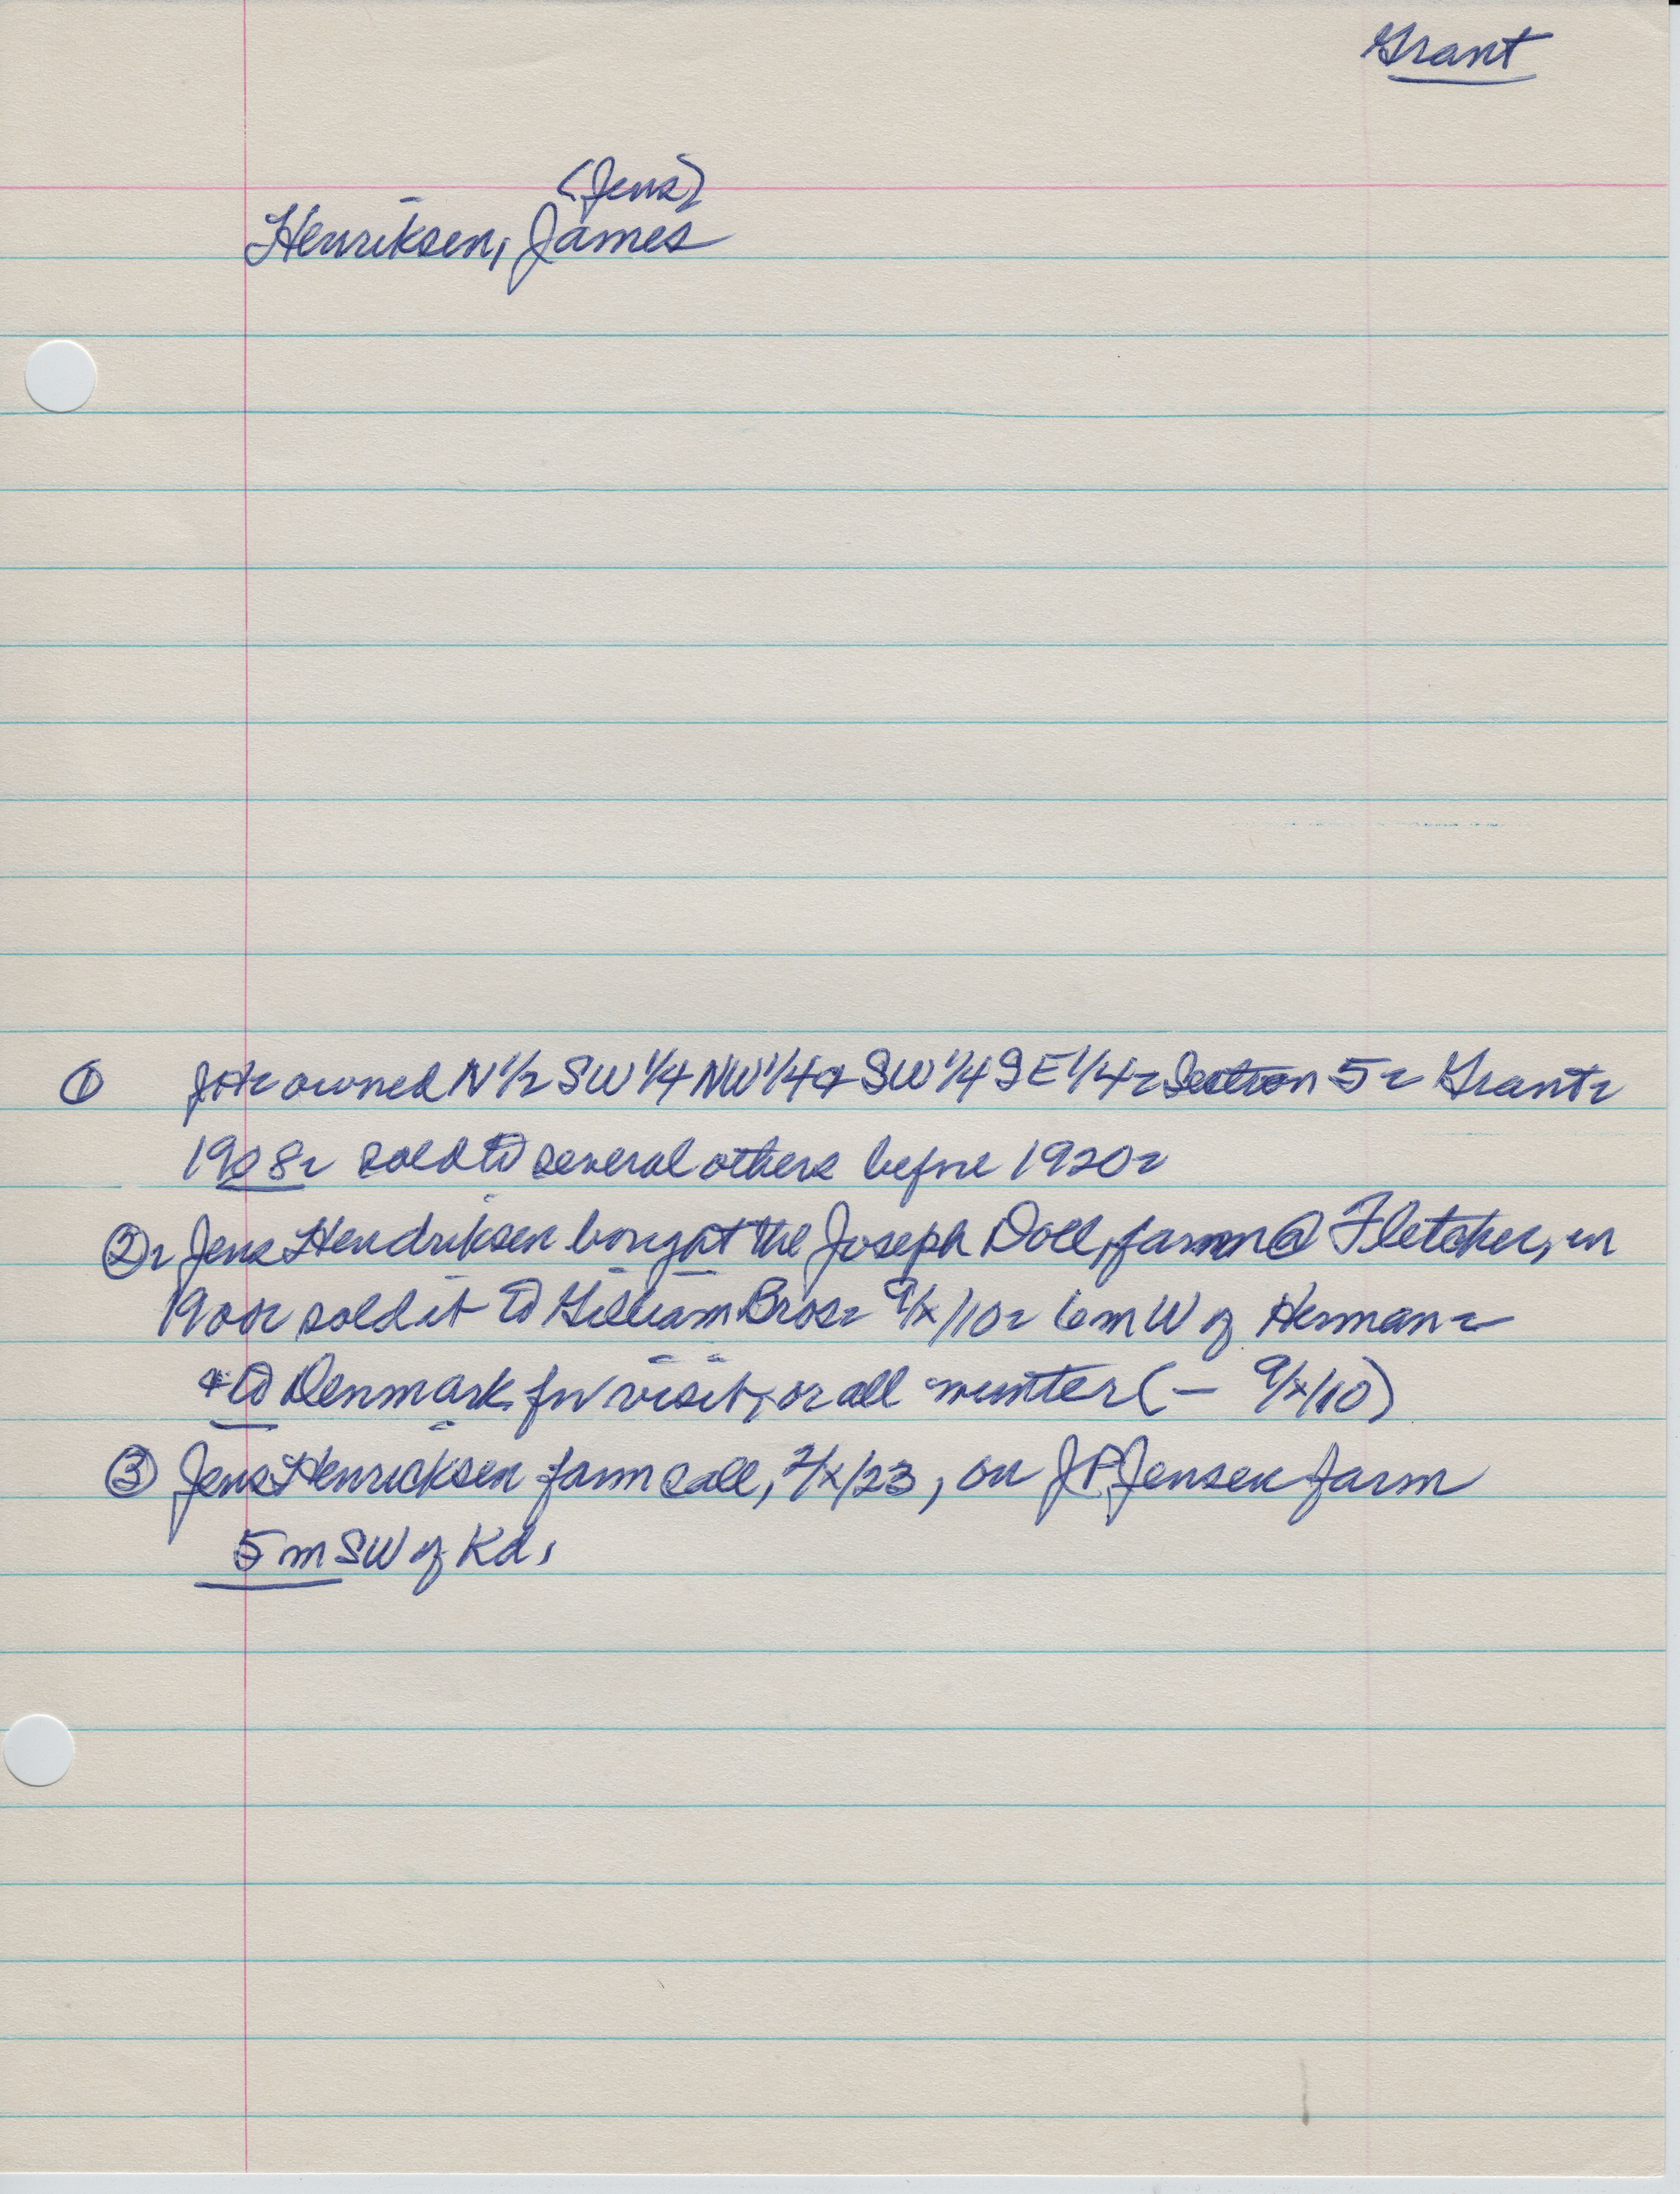 Grant
(Jens)
Henriksen, James
① JH owned N 1/2 SW 1/4 NW 1/4 & SW 1/4 SE 1/4 Section 5 Grant
1908 sold to several others before 1920
② Jens Hendriksen bought the Joseph Doll, farm @ Fletcher, in
sold it to Gilliam Bros 9/x/10 6 m W of Herman
& to Denmark for visit, or all winter (— 9/x/10)
③ Jens Henricksen farm sale, 2/x/23, on J.P. Jensen farm
5 m SW of Kd.